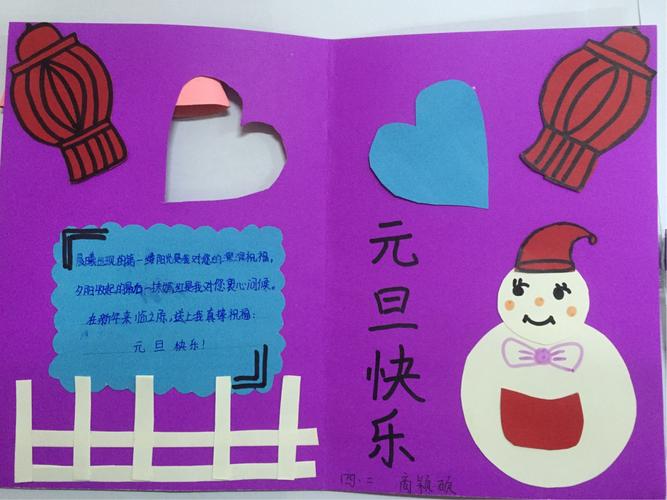 晨曦出现的第一缕阳光是我对您的深深祝福,
夕阳收起的最后一抹嫣红是我对您衷心问候。
在新年来临之际,送上我真挚祝福:
元旦快乐!
元旦快乐
四.二